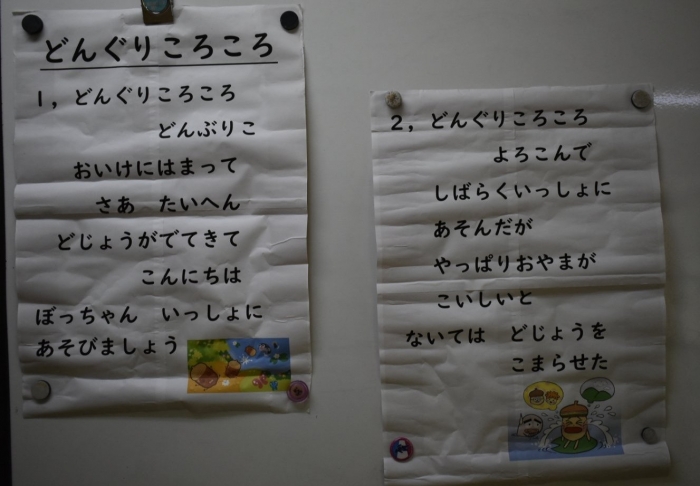 どんぐりころころ
1，どんぐりころころ
どんぶりこ
おいけにはまって
さあ　たいへん
どじょうがでてきて
こんにちは
ぼっちゃん　いっしょに
あそびましょう
2，どんぐりころころ
よろこんで
しばらくいっしょに
あそんだが
やっぱりおやまが
こいしいと
ないては　どじょうを
こまらせた